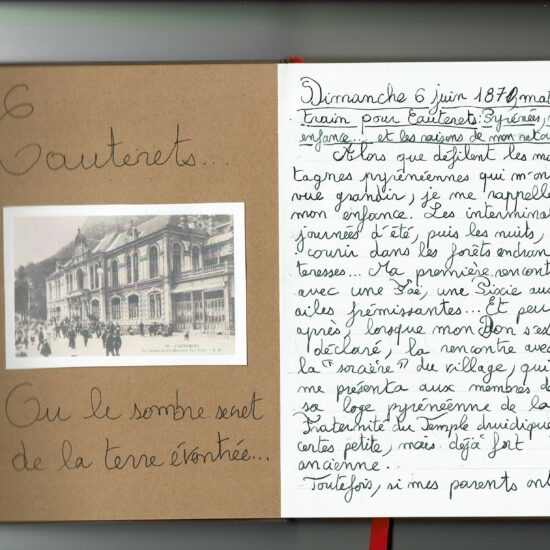 6
Cauterets...
CAUTERETS
Ou le sombre secret
de la terre éventrée...
Dimanche 6 juin 1870, mat
train pour Cauterets: Pyrénées,
enfance... et les raisons de mon retou
Alors que défilent les mo
tagnes pyrénéennes qui m'on
vue grandir, je me rappelle
mon enfance. Les interminab
journées d'été, puis les nuits,
courir dans les forêts enchan
teresses... Ma première rencont
avec une Fae, une Pixie aux
ailes frémissantes... Et peu
après, lorsque mon Don s'es
déclaré, la rencontre avec
la "sorcière" du village, qui
me présenta aux membres de
sa loge pyrénéenne de la
Fraternité du Temple druidique
certes petite, mais déjà fort
ancienne..
Toutefois, si mes parents ont